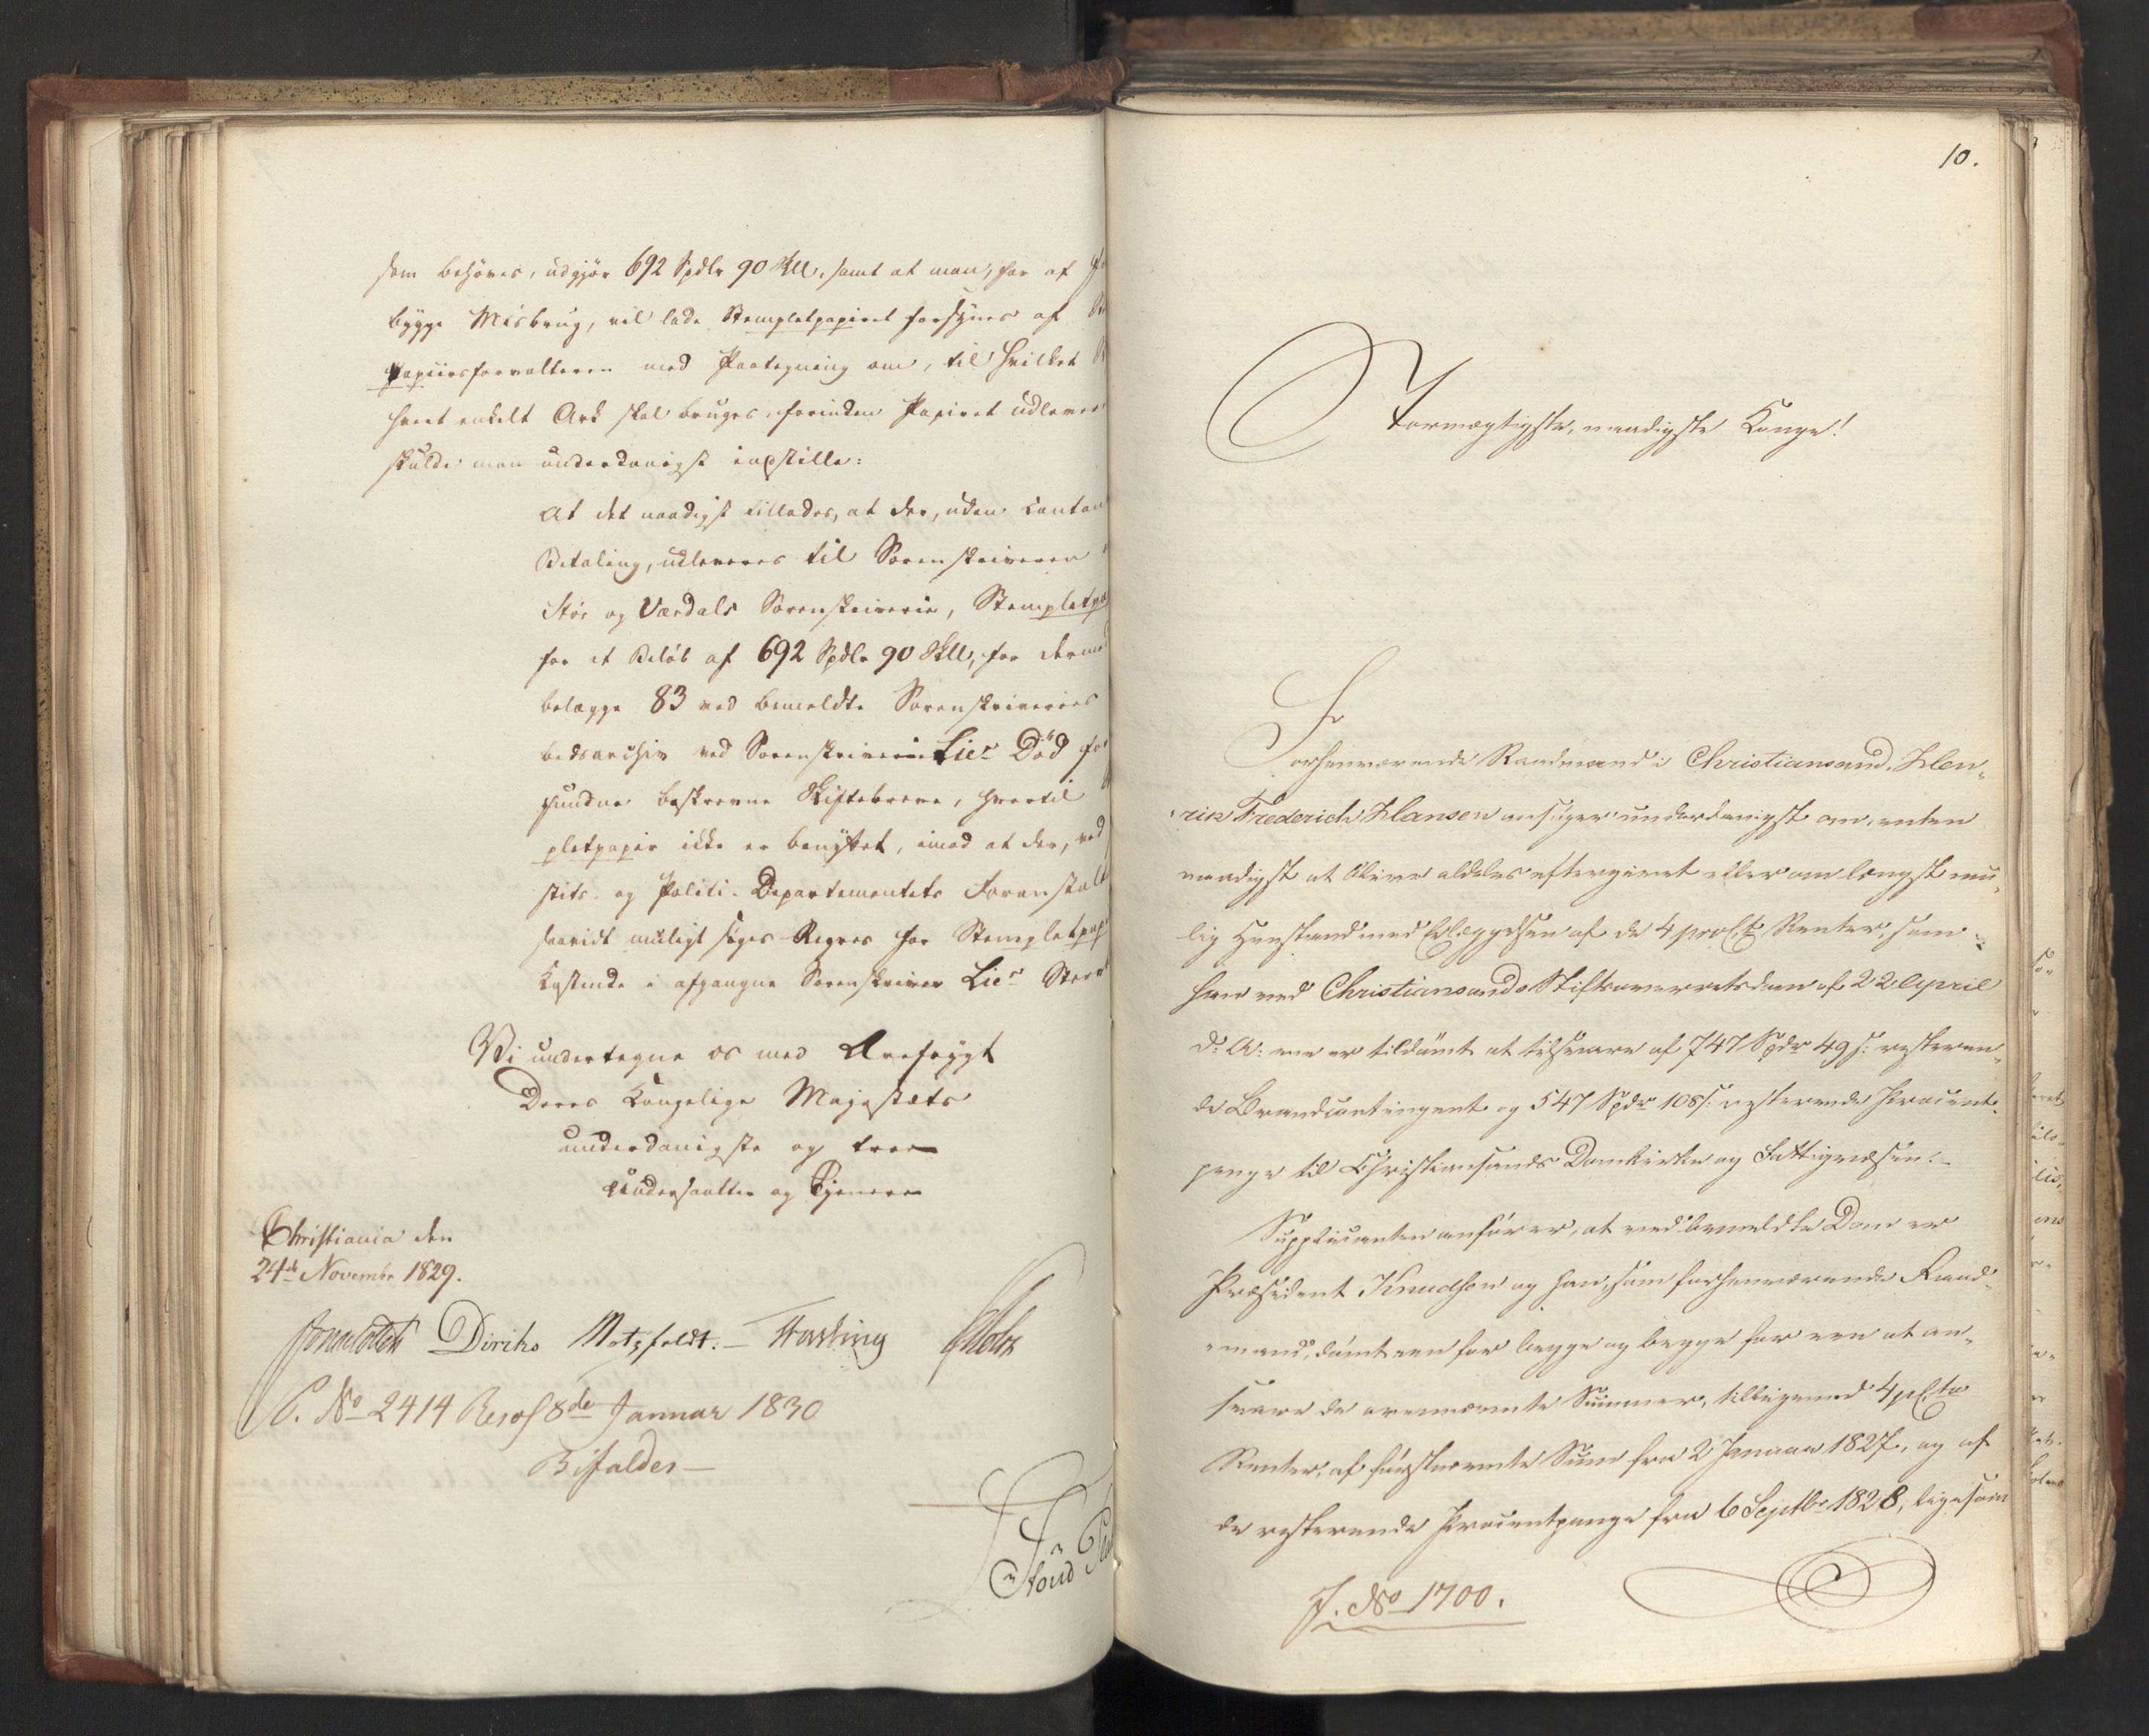 som behøves, udgjør 692 Spdlr 90 Skll, samt at man, for at
bygge Misbrug, vil lade Stempletpapiret forsynes af
papiirsforvalteren med Paategning om, til hvilket
hvert enkelt Ark skal bruges, forinden Papiret udlever
skulde man underdanigst indstille:
At det naadigst tillades, at der, uden Contan
Betaling, udleveres til Sorenskriveren
Stør og Værdals Sorenskriverie, Stempletpa
for et Beløb af 692 Spdlr 90 Skll, for dermed
belægge 83 ved bemeldte Sorenskriveries
bedsarchiv ved Sorenskriver Lies Død fore
fundne beskrevne Skiftebreve, hvortil
pletpapir ikke er benyttet, imod at der, ved
stits- og Politi-Departementets Foranstalt
saavidt muligt søges Regres for Stempletpap
Kostende i afgangne Sorenskriver Lies Sterv
Vi undertegne os med Ærefrygt
Deres Kongelige Majestæts
underdanigste og troe
Undersaatter og Tjenere
Christiania den
24de Novembr 1829.
Diriks Motzfeldt. Fasting Holst
P. No 2414 Resol 8de Januar 1830
Bifaldes
10.
Stormægtigste, naadigste Konge!
Forhenværende Raadmand i Christiansand, Hen-
rik Frederich Hansen ansøger underdanigst om, enten
naadigst at blive aldeles eftergivet eller om længst mu-
lig Henstand med Erlæggelsen af de 4 proCt Renter, som
han ved Christiansands Stiftsoverretsdom af 22 April
d: A: er tildømt at tilsvare af 747 Spdr 49 s: resteren-
de Brandcontingent og 547 Spdr 108 s: resterende Procent-
penge til Christiansands Domkirke og Fattigvæsen.
Supplicanten anfører, at ved bemeldte Dom er
Præsident Knudsen og han, som forhenværende Raad-
mand, dømt een for begge og begge for een at an-
svare de ovennævnte Summer, tilligemed 4 pCto
Renter, af førstnævnte Sum fra 2 Januar 1827, og af
de resterende Procentpenge fra 6 Septbr 1828, ligesom
J. No 1700.